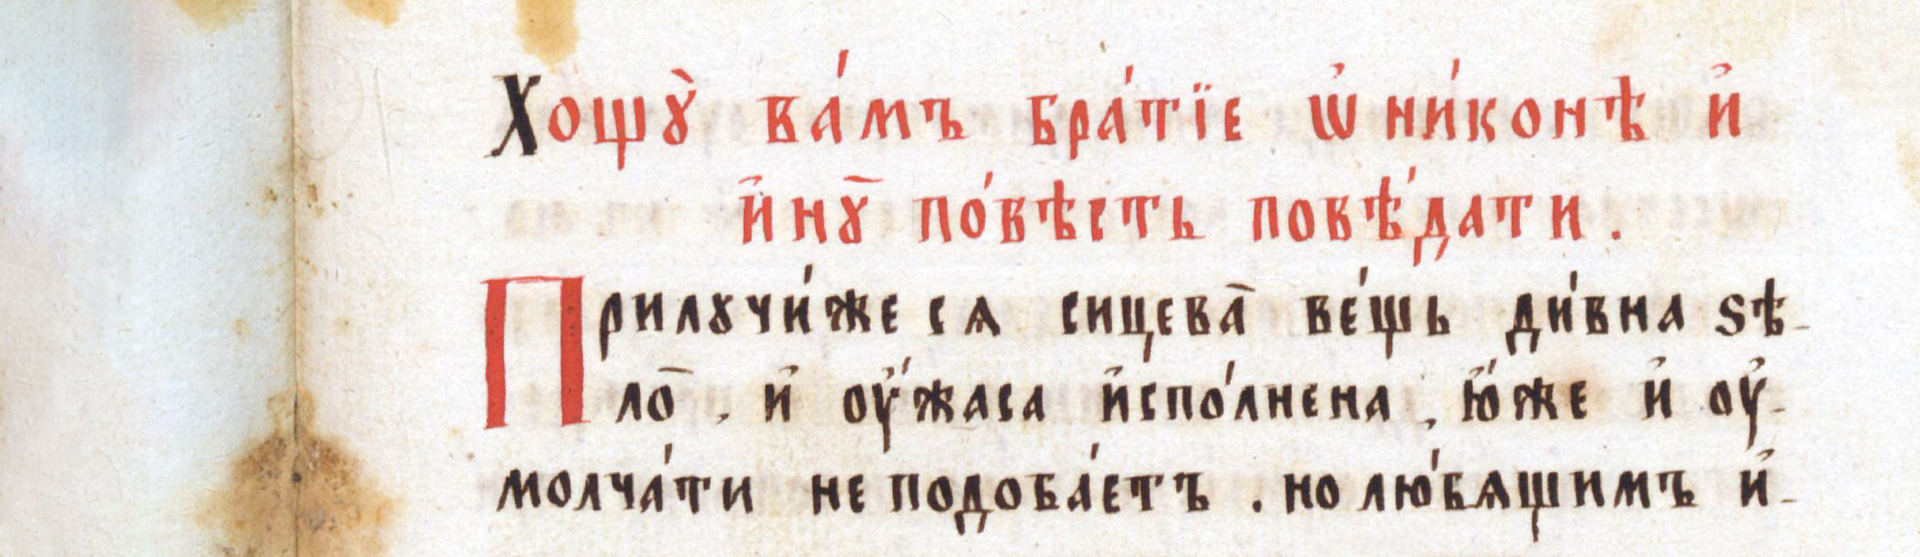 Хощꙋ̀ ва́мъ бра́тїе ѡ҆ ни́конѣ и҆
и҆нꙋ̀ по́вѣсть повѣ́дати.
Прилꙋчи́же сѧ сицева̀ ве́щь ди́вна ѕѣ-
ло̀, и҆ оу҆́жаса и҆спо́лнена, ю҆́же и҆ оу҆-
молча́ти не подоба́етъ. но лю́бѧщимъ и҆-